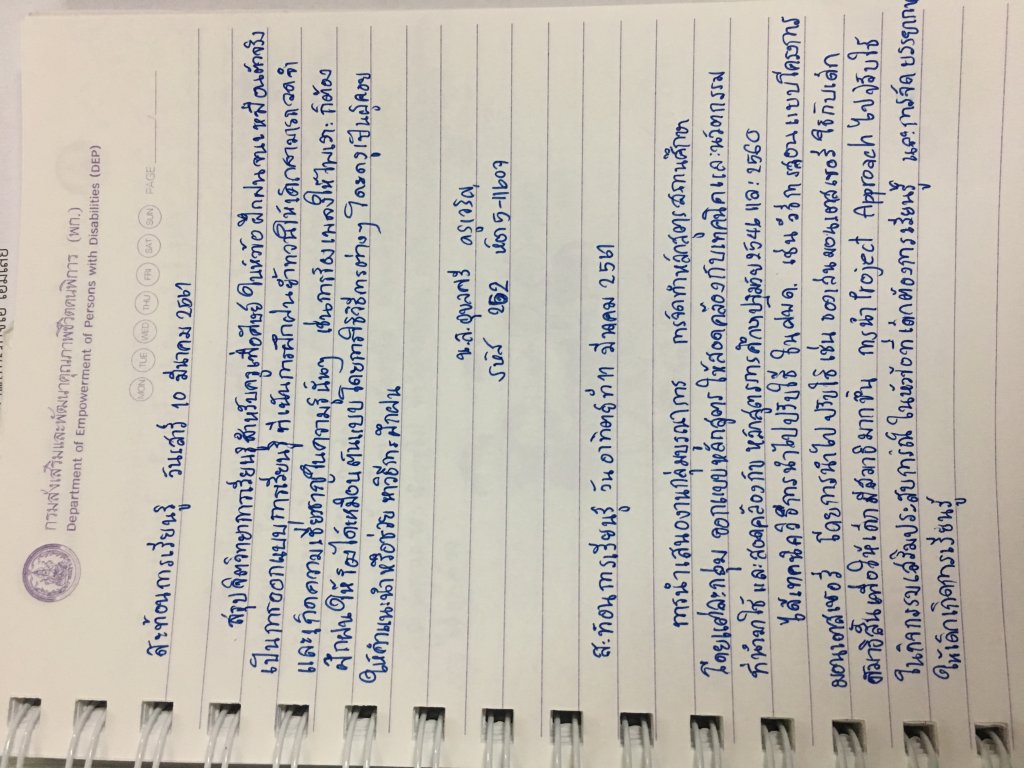 กรมส่งเสริมและพัฒนาคุณภาพชีวิตคนพิการ (พก.)
Department of Empowerment of Persons with Disabilities (DEP)
MON TUE WED THU FRI SAT SUN PAGE
สะท้อนการเรียนรู้ วันเสาร์ 10 มีนาคม 2561
สรุปจิตวิทยาการเรียนรู้สำหรับครูเพื่อศิษย์ ในหัวข้อ ฝึกฝนจนเหมือนตัวจริง
เป็นการออกแบบการเรียนรู้ ที่เน้นการฝึกฝนซ้ำทวนให้เด็กสามารถจดจำ
และเกิดความเชี่ยวชาญในความรู้นั้นๆ เช่นการร้องเพลงให้ไพเราะ ก็ต้อง
ฝึกฝนให้ร้องได้เหมือนต้นแบบ โดยการใช้วิธีการต่างๆ โดยครูเป็นผู้คอย
ให้คำแนะนำหรือช่วยหาวิธีการฝึกฝน
น.ส.อุบลศรี
รหัส 252
สะท้อนการเรียนรู้ วันอาทิตย์ที่ 11 มีนาคม 2561
การนำเสนองานกลุ่มบูรณาการ การจัดทำหลักสูตรสถานศึกษา
โดยแต่ละกลุ่ม ออกแบบหลักสูตร ให้สอดคล้องกับเทคนิคและนวัตกรรม
ที่นำมาใช้ และสอดคล้องกับ หลักสูตรการศึกษาปฐมวัย 2546 และ 2560
ได้เทคนิควิธีการนำไปปรับใช้ ในศพด. เช่น วิธีการสอนแบบโครงการ
มอนเตสซอรี่ โดยการนำไปปรับใช้เช่น ของเล่นมอนเตสซอรี่ ใช้กับเด็ก
สมาธิสั้นเพื่อให้เด็กมีสมาธิมากขึ้น การนำ Project Approach ไปปรับใช้
ในกิจกรรมเสริมประสบการณ์ ในหัวข้อที่เด็กต้องการเรียนรู้ และการจัดบรรยากาศ
ให้เด็กเกิดการเรียนรู้